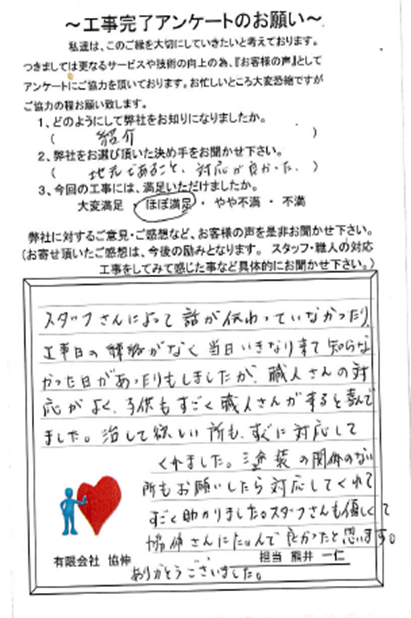 ～工事完了アンケートのお願い～
私達は、このご縁を大切にしていきたいと考えております。
つきましては更なるサービスや技術の向上の為、『お客様の声』として
アンケートにご協力を頂いております。お忙しいところ大変恐縮ですが
ご協力の程お願い致します。
1、どのようにして弊社をお知りになりましたか。
( 紹介 )
2、弊社をお選び頂いた決め手をお聞かせ下さい。
( 地元であること、対応が良かった。 )
3、今回の工事には、満足いただけましたか。
大変満足 ・ ほぼ満足 ・ やや不満 ・ 不満
弊社に対するご意見・ご感想など、お客様の声を是非お聞かせ下さい。
(お寄せ頂いたご感想は、今後の励みとなります。 スタッフ・職人の対応
工事をしてみて感じた事など具体的にお聞かせ下さい。)
スタッフさんによって話が伝わっていなかったり、
工事日の連絡がなく当日いきなり来て知らな
かった日があったりもしましたが、職人さんの対
応がよく、子供もすごく職人さんが来ると喜んで
ました。治して欲しい所も、すぐに対応して
くれました。塗装の関係のない
所もお願いしたら対応してくれて
すごく助かりました。スタッフさんも優しくて
協伸さんにたのんで良かったと思います。
有限会社 協伸 担当 熊井 一仁
ありがとうございました。